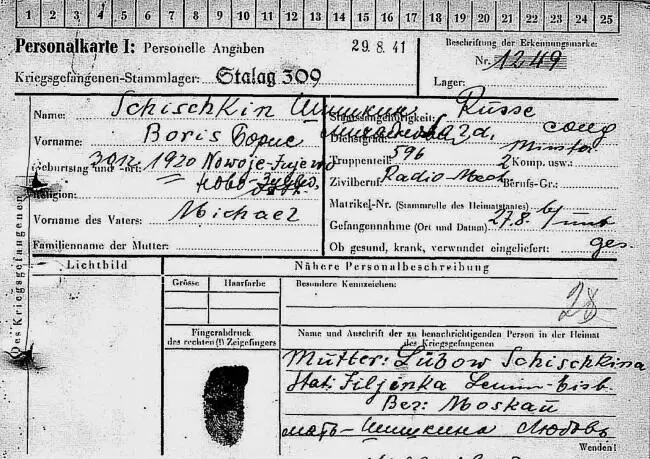 1 2 3 4 5 6 7 8 9 10 11 12 13 14 15 16 17 18 19 20 21 22 23 24 25
Personalkarte I: Personelle Angaben
29.8.41
Beschriftung der Erkennungsmarke:
Nr. 1249
Kriegsgefangenen-Stammlager: Stalag 309
Lager:
Des Kriegsgefangenen
Name: Schischkin Шишкин
Vorname: Boris Борис
Geburtstag und -ort: 1920 Nowoje-
ново-
Religion:
Vorname des Vaters: Michael
Familienname der Mutter:
Staatsangehörigkeit: Russe
Dienstgrad: солд
Truppenteil: 596 2 Komp. usw.:
Zivilberuf: Radio Mech Berufs-Gr.:
Matrikel-Nr. (Stammrolle des Heimatstaates)
Gefangennahme (Ort und Datum): 27.8.
Ob gesund, krank, verwundet eingeliefert: ges.
Lichtbild
Nähere Personalbeschreibung
Grösse Haarfarbe
Besondere Kennzeichen:
28
Fingerabdruck
des rechten (!) Zeigefingers
Name und Anschrift der zu benachrichtigenden Person in der Heimat
des Kriegsgefangenen
Mutter: Lübow Schischkina
Stat: Filjenka Lenin-
Bez: Moskau
мать - Шишкина Любовь
Wenden!